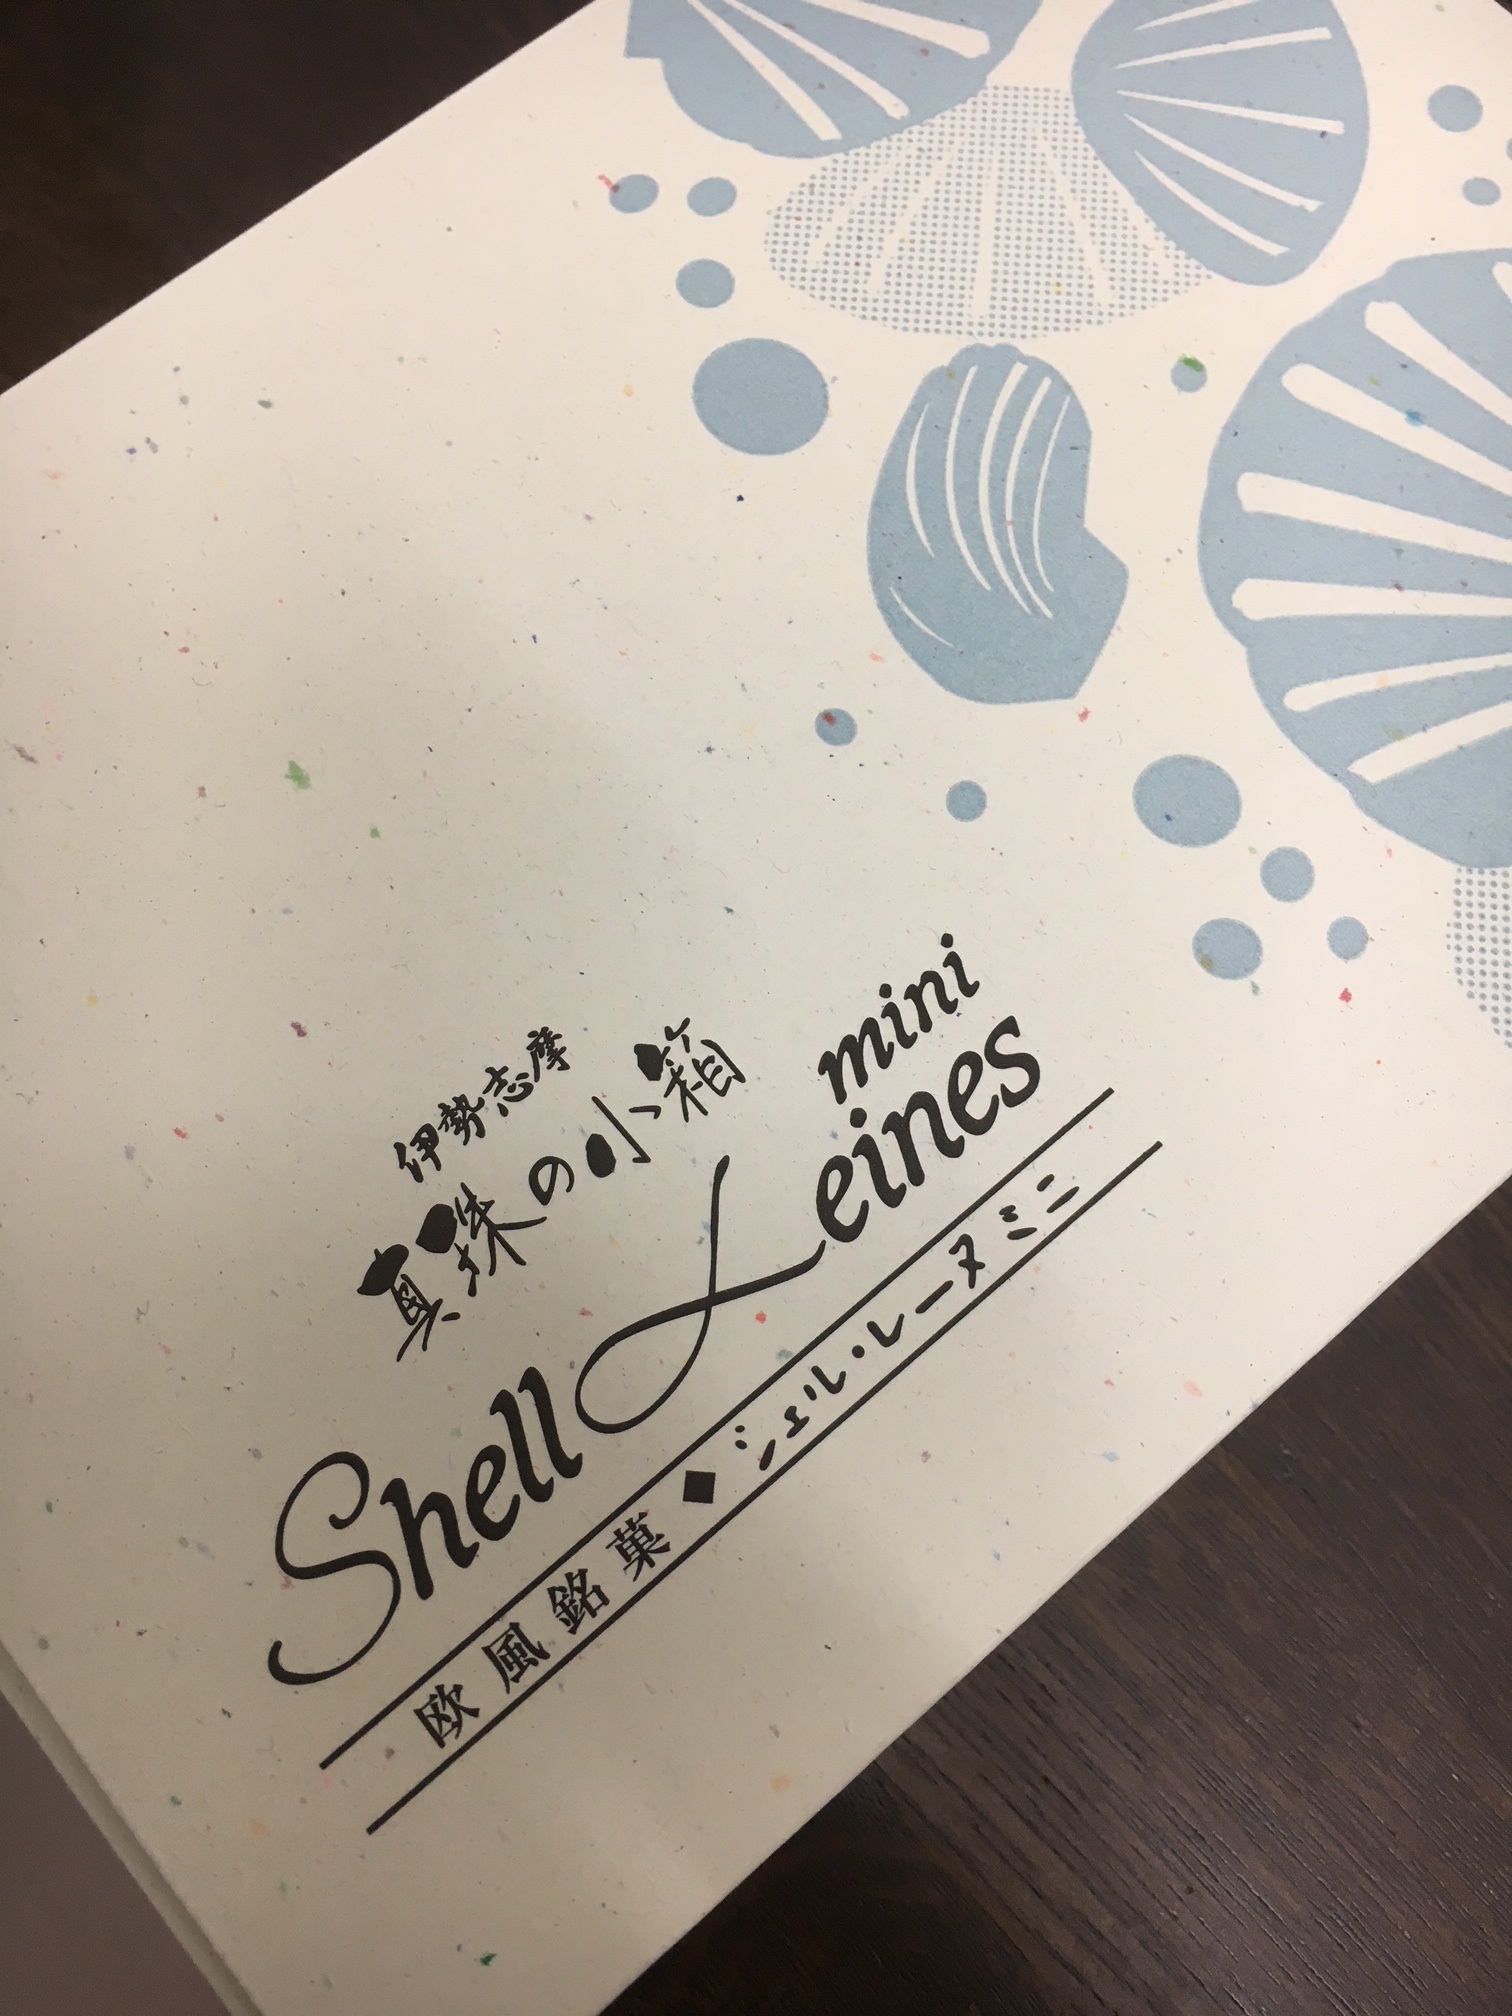 伊勢志摩
真珠の小箱
mini
Shell Leines
欧風銘菓◆シェル・レーヌミニ